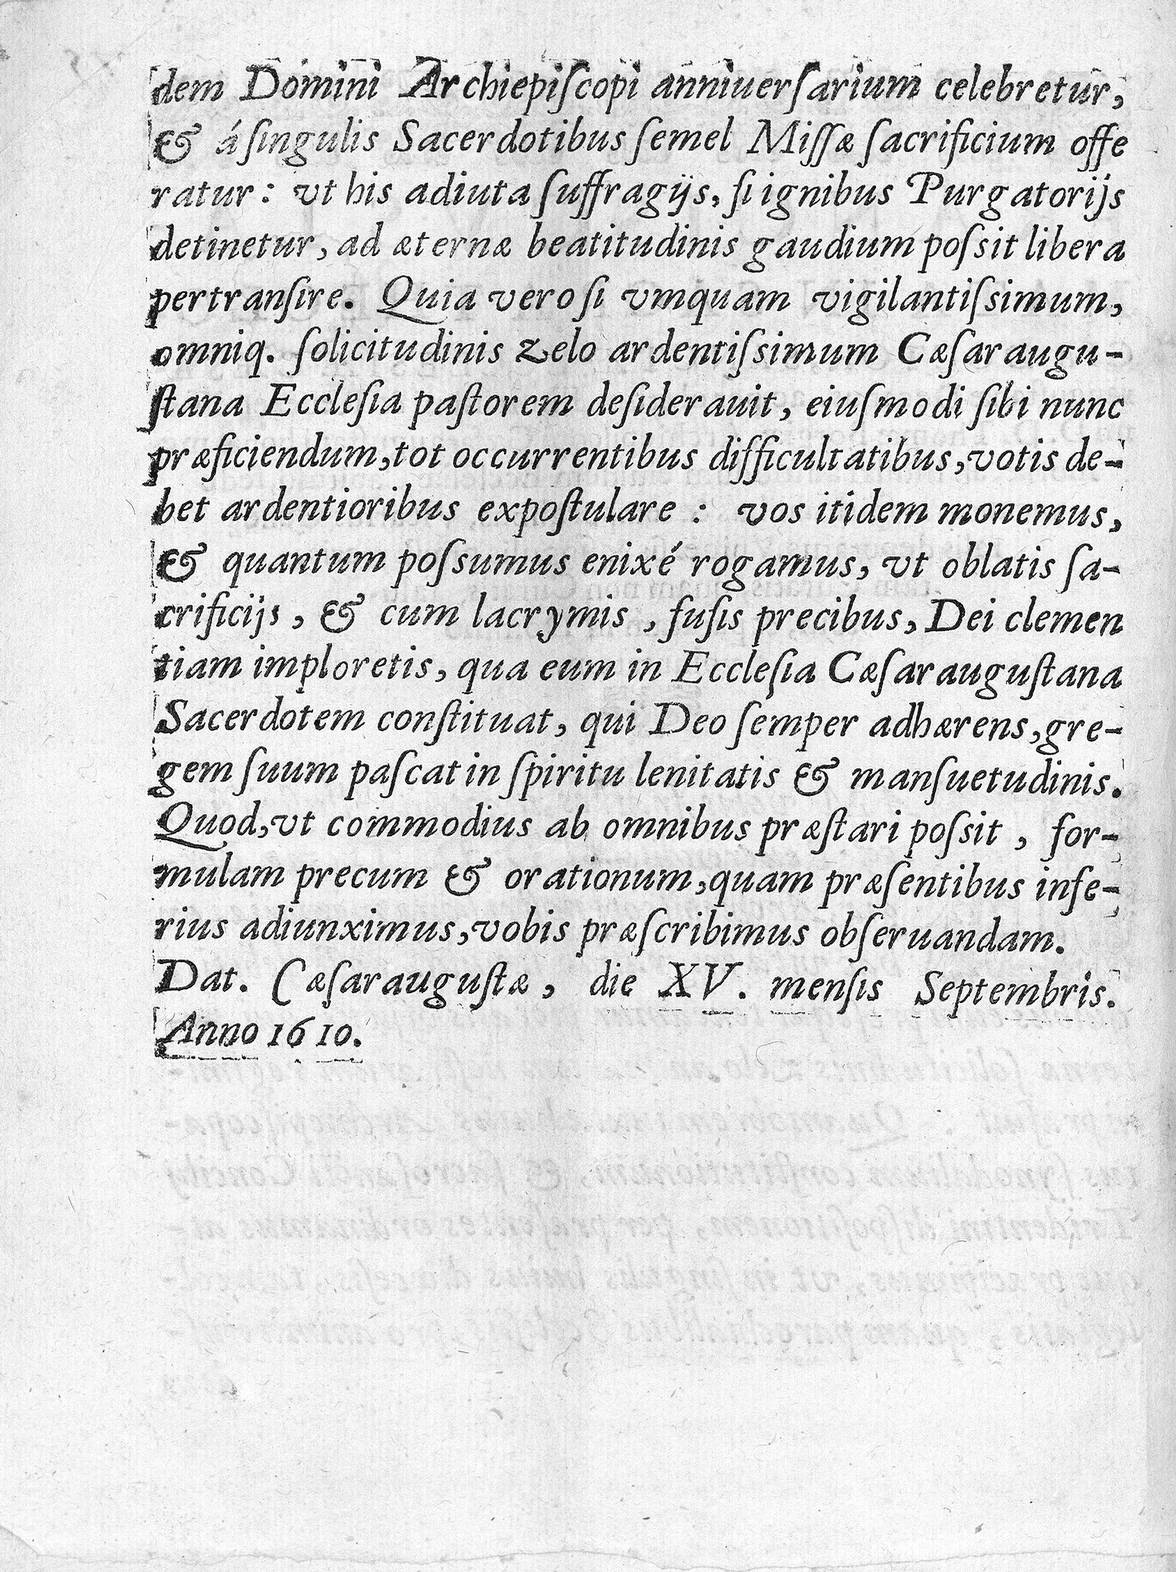 dem Domini Archiepiſcopi anniuerſarium celebretur,
& á ſingulis Sacerdotibus ſemel Miſſæ ſacrificium offe
ratur: vt his adiuta ſuffragijs, ſi ignibus Purgatorijs
detinetur, ad æternæ beatitudinis gaudium poſsit libera
pertranſire. Quia vero ſi vmquam vigilantiſsimum,
omniq. ſolicitudinis zelo ardentiſsimum Cæſaraugu-
ſtana Eccleſia paſtorem deſiderauit, eiuſmodi ſibi nunc
præficiendum, tot occurrentibus difficultatibus, votis de-
bet ardentioribus expoſtulare : vos itidem monemus,
& quantum poſsumus enixé rogamus, vt oblatis ſa-
crificijs, & cum lacrymis, fuſis precibus, Dei clemen
tiam imploretis, qua eum in Eccleſia Cæſaraugustana
Sacerdotem conſtituat, qui Deo ſemper adhærens, gre-
gem ſuum paſcat in ſpiritu lenitatis & manſuetudinis.
Quod, vt commodius ab omnibus præſtari poſsit, for-
mulam precum & orationum, quam præſentibus infe-
rius adiunximus, vobis præſcribimus obſeruandam.
Dat. Cæſarauguſtæ, die XV. menſis Septembris.
Anno 1610.